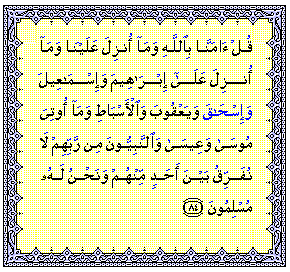 قُلْ ءَامَنَّا بِٱللَّهِ وَمَآ أُنزِلَ عَلَيْنَا وَمَآ
أُنزِلَ عَلَىٰٓ إِبْرَٰهِيمَ وَإِسْمَـٰعِيلَ
وَإِسْحَـٰقَ وَيَعْقُوبَ وَٱلْأَسْبَاطِ وَمَآ أُوتِىَ
مُوسَىٰ وَعِيسَىٰ وَٱلنَّبِيُّونَ مِن رَّبِّهِمْ لَا
نُفَرِّقُ بَيْنَ أَحَدٍ مِّنْهُمْ وَنَحْنُ لَهُۥ
مُسْلِمُونَ ٨٤